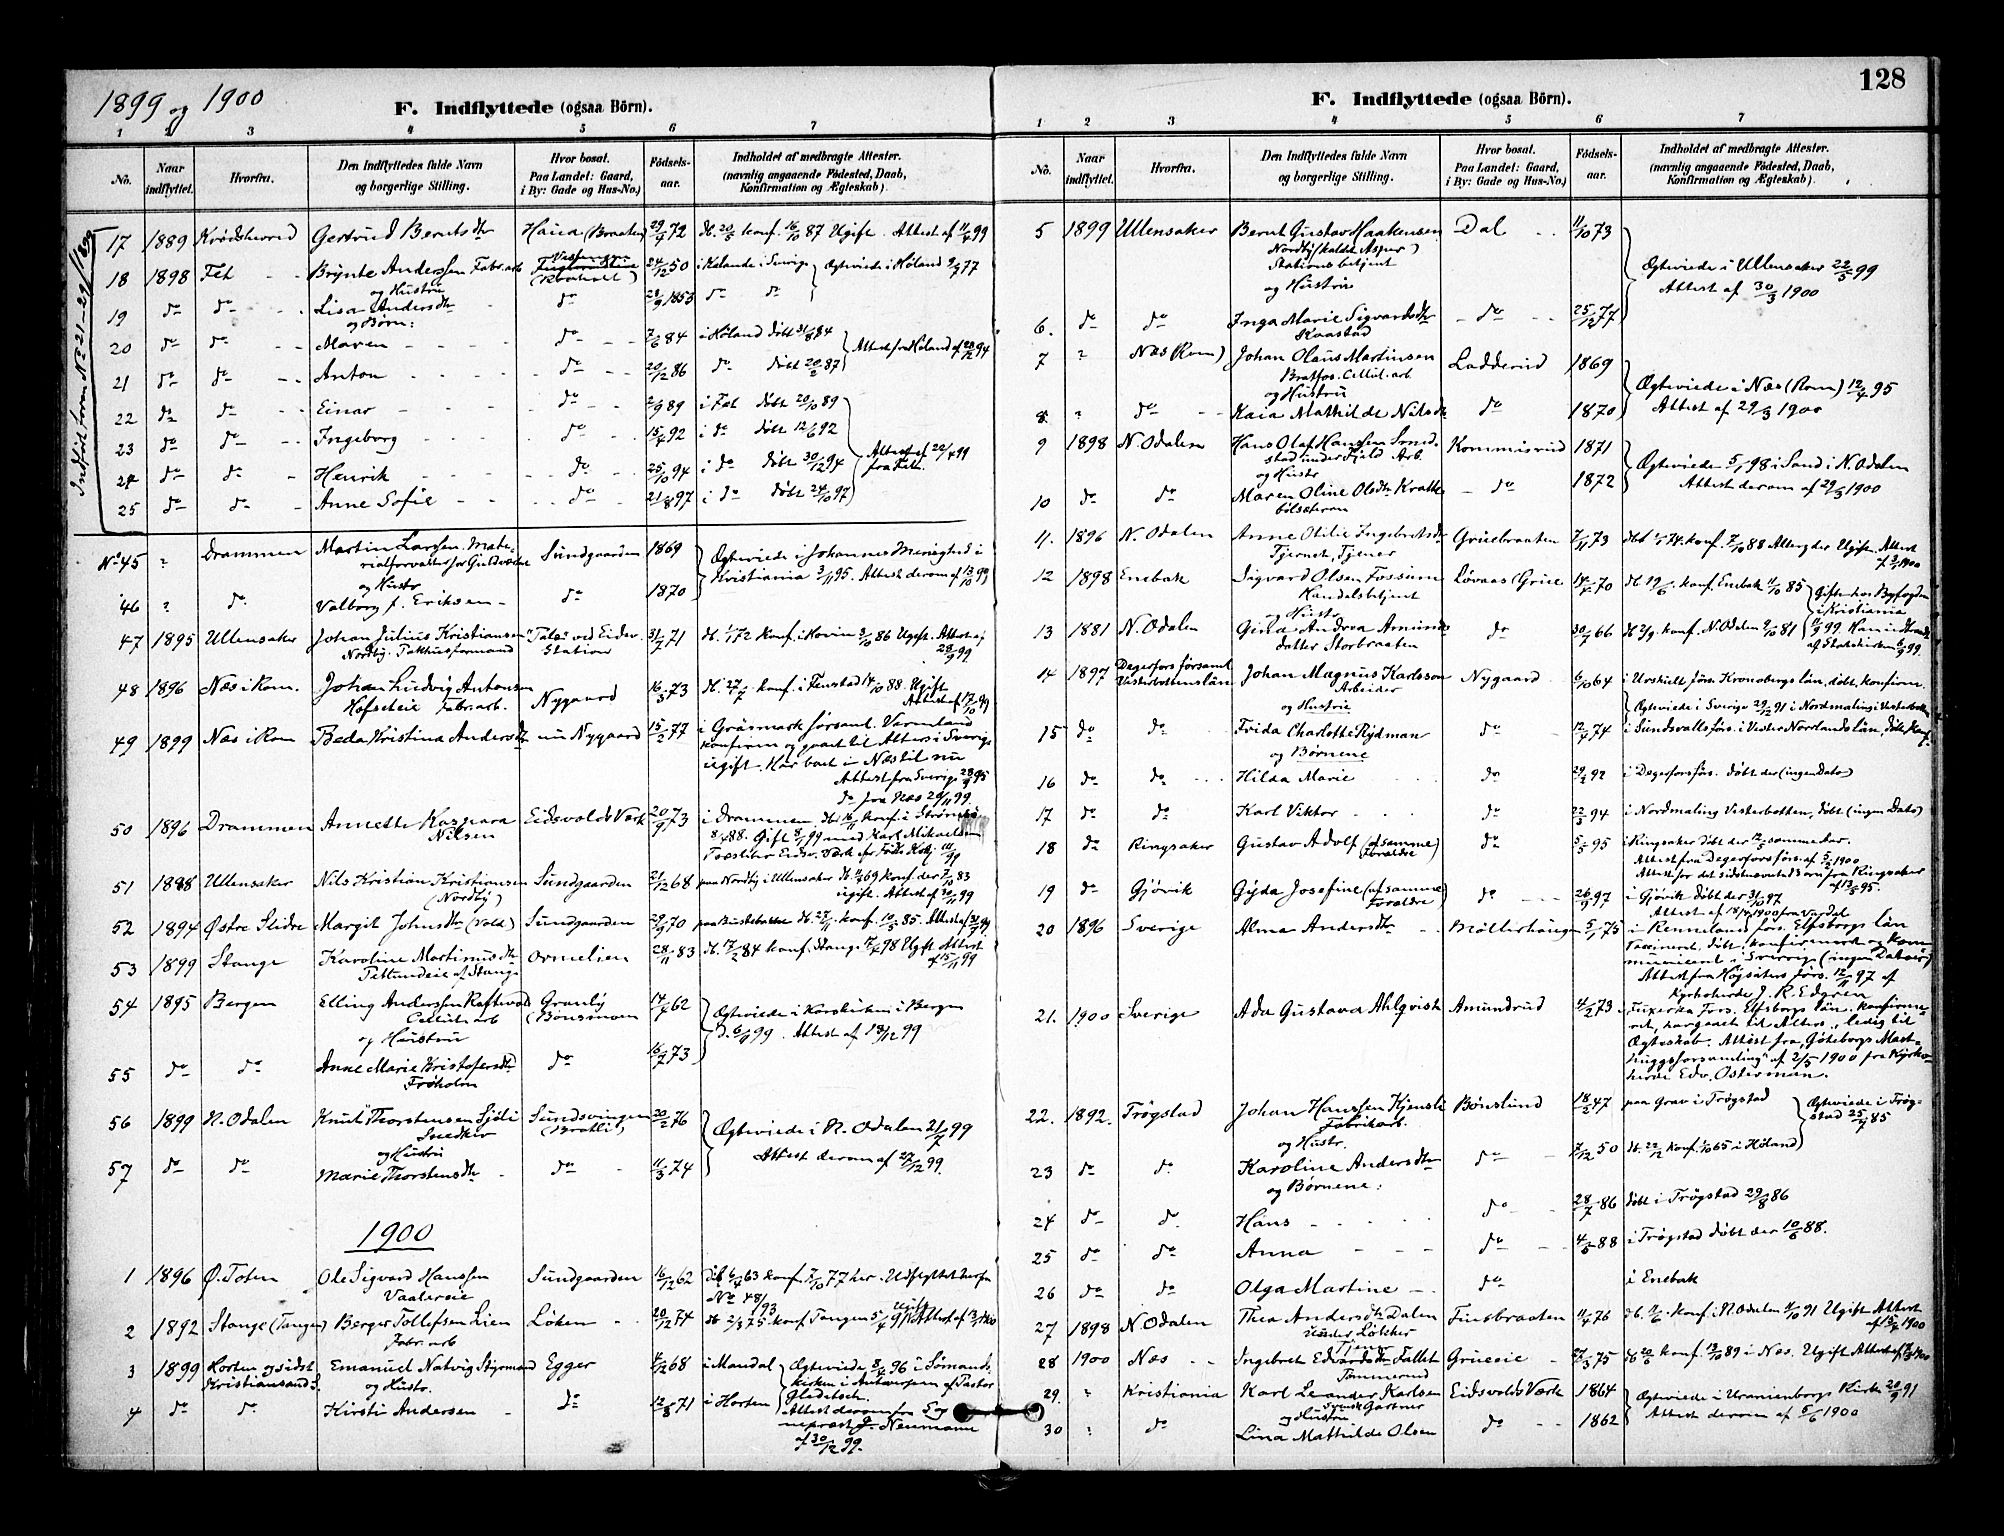 1899 og 1900
F. Indflyttede (ogsaa Börn).
1 2 3 4 5 6 7
No. Naar indflyttet. Hvorfra. Den Indflyttedes fulde Navn og borgerlige Stilling. Hvor bosat. Paa Landet: Gaard, i By: Gade og Hus-No.) Födsels-aar. Indholdet af medbragte Attester. (navnlig angaaende Födested, Daab, Konfirmation og Ægteskab).
17 1889 Krødsherred Gertrud Berntsdtr Haua (Braaten) 29/9 72 Ugift. Attest af 11/4 99
18 1898 Fet Brynte Anderssen Fabr.arb 24/12 50 i Sverige Ægteviede i Høland 9/4 77
og Hustru
19 do do Lisa Andersdtr do do do
og Børn:
20 do do Maren do 7/6 84 i Høland døbt 31/8 84
Attest fra Høland af 28/12 94
21 do do Anton do 20/12 86 do døbt 20/2 87
22 do do Einar do 2/9 89 i Fet døbt 20/10 89
23 do do Ingeborg do 15/4 92 i do døbt 12/6 92
Attest af 22/4 99
fra Fet.
24 do do Henrik do 25/10 94 i do døbt 30/12 94
25 do do Anne Sofie do 21/8 97 i do døbt 24/10 97
No 45 ? Drammen Martin Larssen. Mate-
rialforvalter for Guldværket
Sundgaarden 1869
Ægteviede i Johannes Menighed i
Kristiania 3/11 95. Attest derom af 13/10 99
og Hustr
46 ? do Valborg f. Eriksen do 1870
47 1895 Ullensaker Johan Julius Kristiansen
Nordby. Pakhusformand
"Tale" ved Eidsv. Station 31/7 71 konf. i Hovin 3/10 86 Ugift. Attest af 28/9 99
48 1896 Næs i Rom. Johan Ludvig Antonsen
Hofseteie Fabr.arb.
Nygaard 16/3 73 konf. i Fenstad 14/10 88. Ugift
Attest af 17/10 99
49 1899 Næs i Rom Beda Kristina Andersdtr nu Nygaard 15/2 77 i Gräsmark församl. Vermland
konfirm og gaaet til Alters i Sverige
ugift. Har boet i Næs til nu
Attest fra Sverig 28/9 95
do fra Næs 20/11 99
50 1896 Drammen Annette Kaspara
Nilsen
Eidsvolds Værk 20/9 73 i Drammen, dbt 16/11 konf. i Strømsø
8/4 88. Gift 8/1 99 med Karl Mikaelsen
51 1888 Ullensaker Nils Kristian Kristiansen
(Nordby)
Sundgaarden 21/12 68 paa Nordby i Ullensaker konf. der 7/10 83
ugift. Attest af 20/11 99
52 1894 Østre Slidre Margit Johnsdtr (Vold) Sundgaarden 29/9 70 konf. 10/5 85.
53 1899 Stange Karoline Martinusdtr Ormelien 28/11 83 db. 17/2 84 konf. Stange Ugift Attest
af 15/11 99
54 1895 Bergen Elling Anderssen
Cellul. arb
og Hustru
Granly
(Bønsmoen 14/4 62
Ægteviede i Korskirken i Bergen
d. 6/9 99. Attest af 18/12 99
55 do do Anne Marie Kristofersdtr
Frøholm
do 16/7 73
56 1899 N. Odalen Knut Thorstensen Sjøli
Snedker
og Hustru
Sundsvingen
(Bratli) 20/2 76
Ægteviede i N. Odalen 21/7 99
Attest derom af 27/12 99.
57 do do Marie Thorstensdtr do 11/3 74
1900
1 1896 Ø. Toten Ole Sigvard Hanssen
Vaaleneie
Sundgaarden 16/12 62 konf. 7/10 77 her. Udflyttet herfra
No 48/93
2 1892 Stange (Tangen) Berger Tollefsen Lien
Fabr. arb
Løken 20/12 74 db 2/3 75 konf Tangen Ugift Attest af
3 1899 Horten og sidst
Kristiansand S.
Emanuel Natvig Styrmand
og Hustr.
Egger 4/12 68 i Mandal
Ægteviede 8/2 96 i Sømands-
kirken i Antwerpen af Pastor
Gladitsch.
4 do do Kirsti Andersen do 12/8 71 i Horten
Attest derom fra
Neumann
af 30/12 99.
128
F. Indflyttede (ogsaa Börn).
1 2 3 4 5 6 7
No. Naar indflyttet. Hvorfra. Den Indflyttedes fulde Navn og borgerlige Stilling. Hvor bosat. Paa Landet: Gaard, i By: Gade og Hus-No.) Födsels-aar. Indholdet af medbragte Attester. (navnlig angaaende Födested, Daab, Konfirmation og Ægteskab).
5 1899 Ullensaker Bernt Gustav Haakensen
Nordby (kaldt Asper)
Stationsbetjent
og Hustru
Dal 11/10 73
Ægteviede i Ullensaker 22/5 99
Attest af 30/3 1900
6. do do Inga Marie Sigvardsdtr
Kaastad
do 25/12 77
7 ? Næs (Rom) Johan Olaus Martinsen
Bratfos. Cellul. arb.
og Hustru
Ladderud 1869
Ægteviede i Næs (Rom) 12/4 95
Attest af 29/3 1900
8. ? do Kaia Mathilde Nilsdtr do 1870
9 1898 N. Odalen Hans Olaf Hanssen
stad under Fjeld. Arb.
og Hustr
Kommisrud 1871
Ægteviede 5/1 98 i Sand i N. Odalen
Attest derom af 29/3 1900
10 do do Maren Oline Olsdtr
do 1872
11. 1896 N. Odalen Anne Otilie Ingebretsdtr
Tjernet, Tjener
Gruebraaten 7/11 73 konf. 7/10 88 Ugift. Attest
12 1898 Enebak Sigvard Olsen Fossum
Handelsbetjent
og Hustr
Løvaas (Grue 14/4 70 konf. Enebak 11/10 85
Gifte hos Byfogden
i Kristiania
13 1881 N. Odalen Gina Andrea Amunds
datter Storbraaten
do 30/7 66 db 2/9. konf. N. Odalen 9/10 81
14 1897 Degerfors församl.
Vesterbottens län
Johan Magnus Karlsson
Arbeider
og Hustru
Nygaard 6/10 64 i Urshult förs. Kronobergs län, döbt, konfirm.
Ægteviede i Sverige 29/12 91 i Nordmaling i
15 do do Frida Charlotte Rydman
og Børnene
do 12/4 74 i Sundsvalls förs. i Vester Norlands län, döbt, Konf
16 do do Hilda Marie do 29/2 92 i Degerfors förs. döbt der (ingen Dato)
17 do do Karl Viktor do 22/3 94 i Nordmaling Vesterbotten, döbt (ingen Dato)
18 do Ringsaker Gustav Adolf (af samme
Forældre)
do 5/5 95 i Ringsaker döbt der 12/5 sommeder.
Attest fra Degerfors förs. af 5/2 1900
19 do Gjøvik Gyda Josefine (af samme
Forældre)
do 26/9 97 i Gjøvik döbt der 31/10 97
Attest af 18/4 1900 fra Vardal
20 1896 Sverige Alma Andersdtr Möllerhaugen 5/1 75 i Rennelanda förs. Elfsborgs län
Vaccineret, döbt, konfirmeret og kom-
municeret i Sverrig (ingen Datoer)
Attest fra Högsäters förs. 12/11 97 af
Kyrkoherde J. R. Edgren
21. 1900 Sverige Ada Gustava Ahlqvist Amundrud 4/2 73 förs. Elfsborgs län. konfirme-
ret, har gaaet til Alters, ledig til
Ægteskab. Attest fra "Göteborgs Mast-
huggsforsamling" af 2/5 1900 fra Kyrko-
herde Edv. Österman.
22. 1892. Trøgstad Johan Hanssen Kjensli
Fabrikarb.
og Hustr.
Bønslund 18/5 47 paa Grav i Trøgstad
Ægteviede i Trøg-
stad 25/7 85
23 do do Karoline Andersdtr
og Børnene:
do 7/12 50 db. 22/12 konf. 1/10 65 i Høland
24 do do Hans do 28/7 86 døbt i Trøgstad 29/8 86
25 do do Anna do 4/5 88 i Trøgstad døbt der 10/6 88.
26 do do Olga Martine do i Enebak
27 1898 N. Odalen Thea Andersdtr Dalen Finsbraaten 11/4 76 konf. i N. Odalen Ugift Attest
28 1900 Næs Ingebret Edvardsdtr Fallet
Tømmerud
Grueeie 27/3 75 konf. 13/10 89 i Næs. Ugift
29. ? Kristiania Karl Leander Karlsen
svensk Gartner
og Hustru
Eidsvolds Værk 1864
Ægteviede i Uranienborgs Kirke 20/9 91
Attest derom af 5/6 1900
30 ? do Lina Mathilde Olsen do 1862